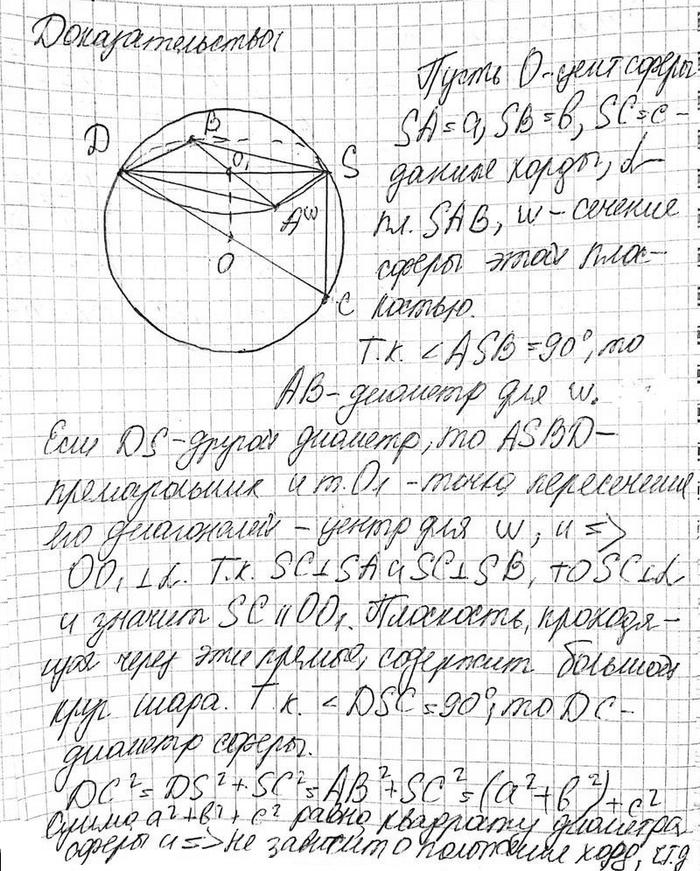 Доказательство:
Пусть O-цент сферы
SA=a, SB=b, SC=c -
данные хорды, α-
пл. SAB, w - сечение
сферы этой плос-
костью.
Т.к. <ASB=90°, то
AB-диаметр для w.
Если DS-другой диаметр, то ASBD-
прямоугольник и т.O1 - точка пересечение
его диагоналей - центр для w, и =>
OO1⊥α. Т.к. SC⊥SA и SC⊥SB, то SC⊥α
и значит SC॥OO1. Плоскость, проходя-
щая через эти прямые, содержит большой
круг шара. Т.к. <DSC=90°, то DC-
диаметр сферы.
DC²=DS²+SC²=AB²+SC²=(a²+b²)+c²
Сумма a²+b²+c² равна квадрату диаметра
сферы и => не зависит о положения хорд, ч.т.д
D
B
O1
S
A
w
O
C